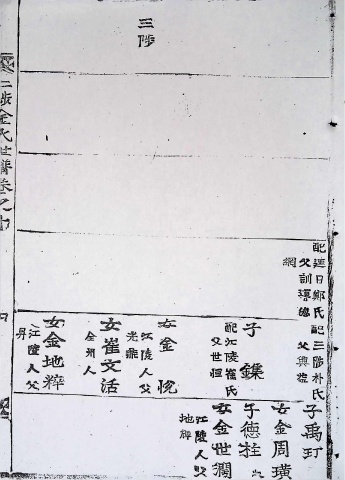 三陟
三陟金氏世譜卷之十
四
配延日鄭氏
父訓導
綱
配三陟朴氏
父興
子鏶
配江陵崔氏
父世恒
女金悅
江陵人父
光
女崔文活
全州人
女金地粹
江陵人父
昇
子禹
女金周璜
子德柱
女金世瀾
江陵人父
地